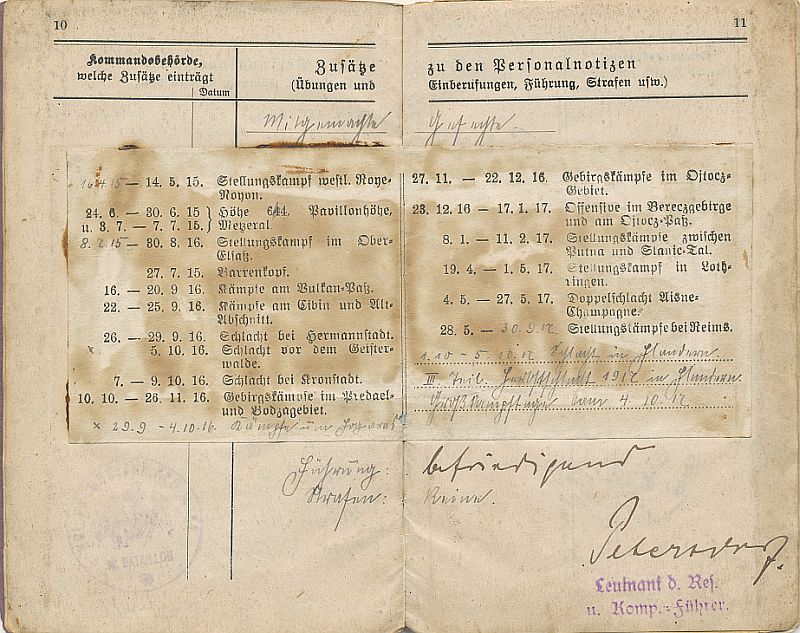 10
Kommandobehörde,
welche Zusätze einträgt
Datum
Zusätze
(Übungen und
Mitgemachte
16.4.15 — 14. 5. 15. Stellungskampf westl. Roye-
Noyon.
24. 6. — 30. 6. 15 } Höhe 644. Pavillonhöhe,
u. 3. 7. — 7. 7. 15. } Metzeral.
8.7.15 — 30. 8. 16. Stellungskampf im Ober-
Elsaß.
27. 7. 15. Barrenkopf.
16. — 20. 9. 16. Kämpfe am Vulkan-Paß.
22. — 25. 9. 16. Kämpfe am Cibin und Alt-
Abschnitt.
26. — 29. 9. 16. Schlacht bei Hermannstadt.
x 5. 10. 16. Schlacht vor dem Geister-
walde.
7. — 9. 10. 16. Schlacht bei Kronstadt.
10. 10. — 26. 11. 16. Gebirgskämpfe im Predael-
und Bodzagebiet.
x 29.9 - 4.10.16. Kämpfe um Fogaras
Führung:
Strafen:
BATAILLON
11
zu den Personalnotizen
Einberufungen, Führung, Strafen usw.)
Gefechte.
27. 11. — 22. 12. 16. Gebirgskämpfe im Ojtocz-
Gebiet.
23. 12. 16 — 17. 1. 17. Offensive im Bereczgebirge
und am Ojtocz-Paß.
8. 1. — 11. 2. 17. Stellungskämpfe zwischen
Putna und Slanic-Tal.
19. 4. — 1. 5. 17. Stellungskampf in Loth-
ringen.
4. 5. — 27. 5. 17. Doppelschlacht Aisne-
Champagne.
28. 5. — 30.9.17. Stellungskämpfe bei Reims.
1.10 - 5.10.17 Schlacht in Flandern
III. Teil. Herbstschlacht 1917 in Flandern.
Großkampftage vom 4.10.17
befriedigend
Keine.
Petersdorf.
Leutnant d. Res.
u. Komp.-Führer.